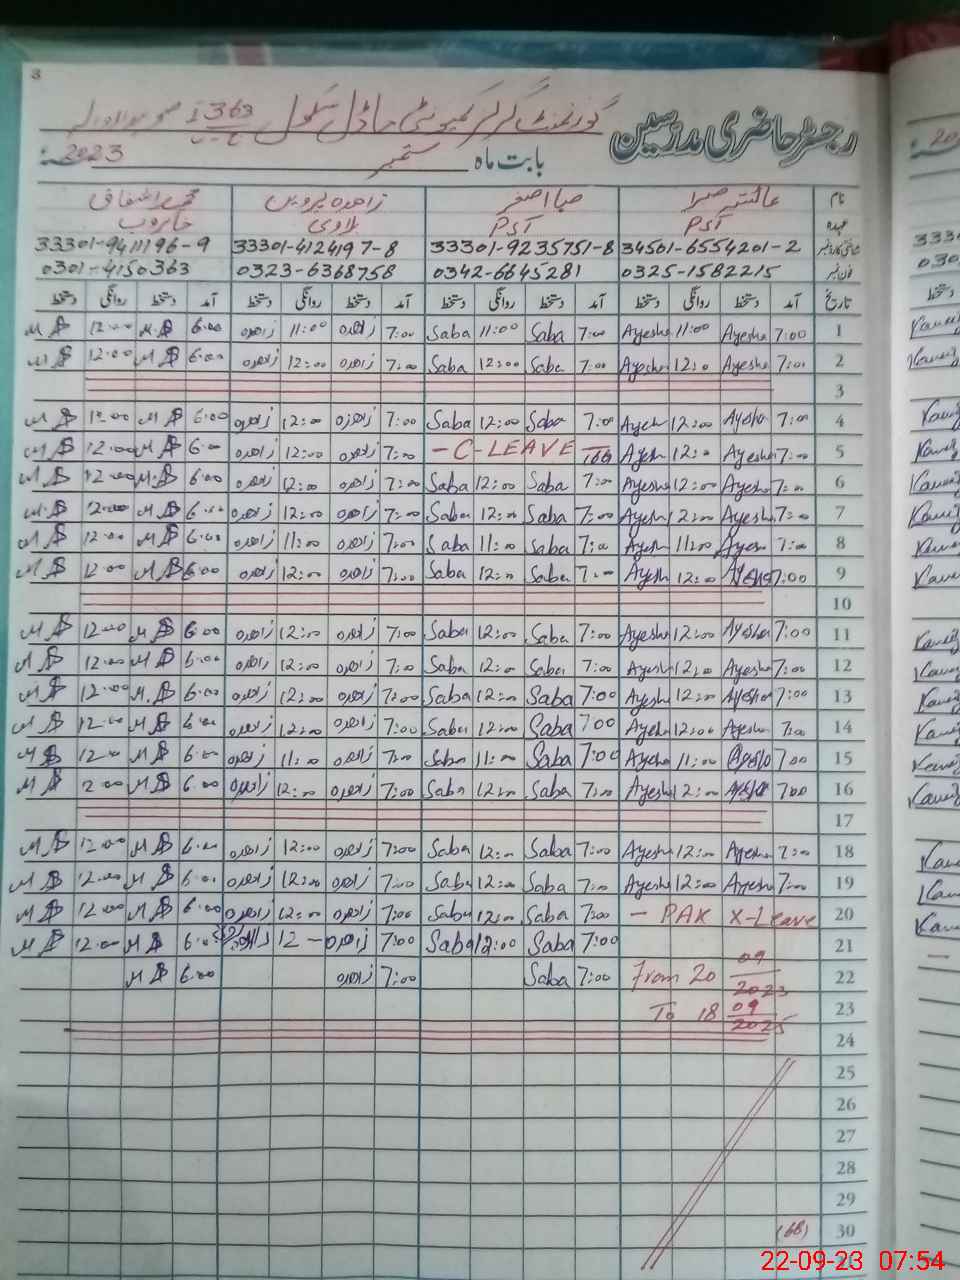 3
رجسٹر حاضری مدرسین گورنمنٹ گرلز کمیونٹی ماڈل سکول 363
بابت ماہ ستمبر سنہ 2023
نام عائشہ صبا اصغر زاہدہ پروین محمد اشفاق
عہدہ PST PST خاکروب
شناختی کارڈ نمبر 34501-6554201-2 33301-9235751-8 33301-4124197-8 33301-9411196-9
فون نمبر 0325-1582215 0342-6645281 0323-6368758 0301-4150363
تاریخ آمد دستخط روانگی دستخط آمد دستخط روانگی دستخط آمد دستخط روانگی دستخط آمد دستخط روانگی دستخط
1 7:00 Ayesha 11:00 Ayesha 7:00 Saba 11:00 Saba 7:00 زاہدہ 11:00 زاہدہ 6:00 12:00
2 7:00 Ayesha 12:0 Ayesha 7:00 Saba 12:00 Saba 7:00 زاہدہ 12:00 زاہدہ 6:00 12:00
3
4 7:00 Ayesha 12:00 Ayesh 7:00 Saba 12:00 Saba 7:00 زاہدہ 12:00 زاہدہ 6:00 12:00
5 7:00 Ayesha 12:0 Ayesh - C-LEAVE - 7:00 زاہدہ 12:00 زاہدہ 6:00 12:00
6 7:00 Ayesha 12:00 Ayesha 7:00 Saba 12:00 Saba 7:00 زاہدہ 12:00 زاہدہ 6:00 12:00
7 7:00 Ayesha 12:00 Ayesha 7:00 Saba 12:00 Saba 7:00 زاہدہ 12:00 زاہدہ 6:00 12:00
8 7:00 Ayesha 11:00 Ayesh 7:00 Saba 11:00 Saba 7:00 زاہدہ 11:00 زاہدہ 6:00 12:00
9 7:00 Ayesha 12:00 Ayesh 7:00 Saba 12:00 Saba 7:00 زاہدہ 12:00 زاہدہ 6:00 12:00
10
11 7:00 Ayesha 12:00 Ayesha 7:00 Saba 12:00 Saba 7:00 زاہدہ 12:00 زاہدہ 6:00 12:00
12 7:00 Ayesha 12:00 Ayesha 7:00 Saba 12:00 Saba 7:00 زاہدہ 12:00 زاہدہ 6:00 12:00
13 7:00 Ayesha 12:00 Ayesha 7:00 Saba 12:00 Saba 7:00 زاہدہ 12:00 زاہدہ 6:00 12:00
14 7:00 Ayesha 12:00 Ayesh 7:00 Saba 12:00 Saba 7:00 زاہدہ 12:00 زاہدہ 6:00 12:00
15 7:00 Ayesha 11:00 Ayesha 7:00 Saba 11:00 Saba 7:00 زاہدہ 11:00 زاہدہ 6:00 12:00
16 7:00 Ayesha 12:00 Ayesha 7:00 Saba 12:00 Saba 7:00 زاہدہ 12:00 زاہدہ 6:00 2:00
17
18 7:00 Ayesha 12:00 Ayesha 7:00 Saba 12:00 Saba 7:00 زاہدہ 12:00 زاہدہ 6:00 12:00
19 7:00 Ayesha 12:00 Ayesha 7:00 Saba 12:00 Saba 7:00 زاہدہ 12:00 زاہدہ 6:00 12:00
20 - PAK X-Leave 7:00 Saba 12:00 Saba 7:00 زاہدہ 12:00 زاہدہ 6:00 12:00
21 7:00 Saba 12:00 Saba 7:00 زاہدہ 12 - زاہدہ 6:00 12:00
22 From 20 09/2023 7:00 Saba 7:00 زاہدہ 6:00
23 To 18 09/2025
24
25
26
27
28
29
30 (68)
22-09-23 07:54